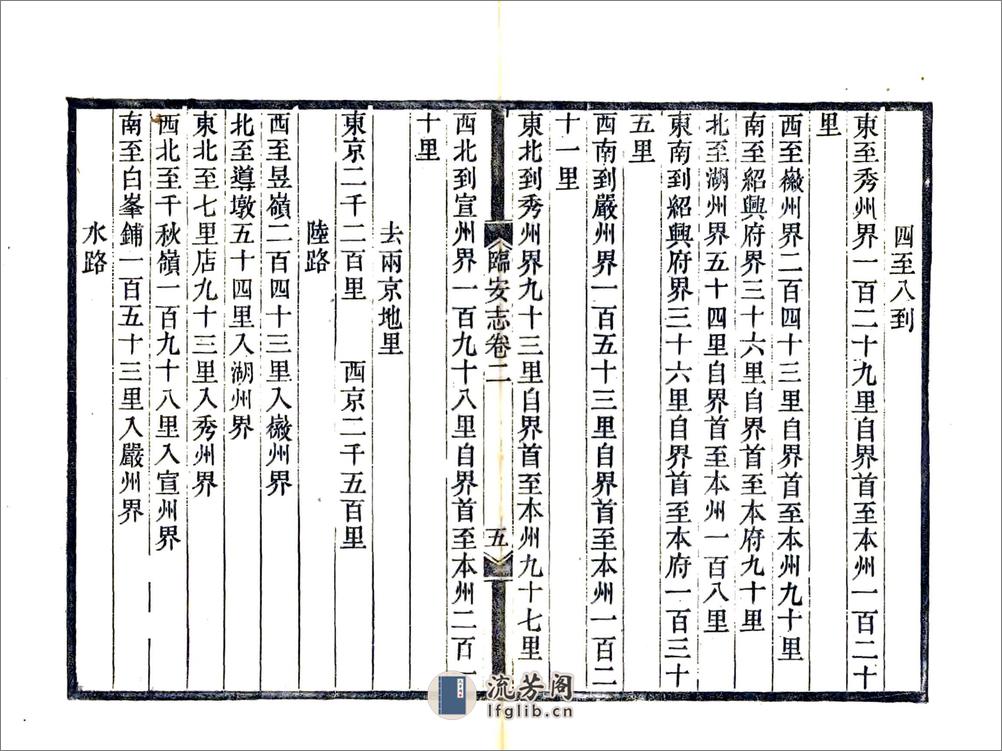 四至八到
東至秀州界一百二十九里自界首至本州一百二十
里
西至㣲州界二百四十三里自界首至本州九十里
南至紹興府界三十六里自界首至本府九十里
北至湖州界五十四里自界首至本州一百八里
東南到紹興府界三十六里自界首至本府一百三十
五里
西南到嚴州界一百五十三里自界首至本州一百二
十一里
東北到秀州界九十三里自界首至本州九十七里
臨安志卷二
五
西北到宣州界一百九十八里自界首至本州二百一
十里
去兩京地里
東京二千二百里 西京二千五百里
陸路
西至昱嶺二百四十三里入㣲州界
北至導墩五十四里入湖州界
東北至七里店九十三里入秀州界
西北至千秋嶺一百九十八里入宣州界
南至白峯鋪一百五十三里入嚴州界
水路
流芳阁
lfglib.cn